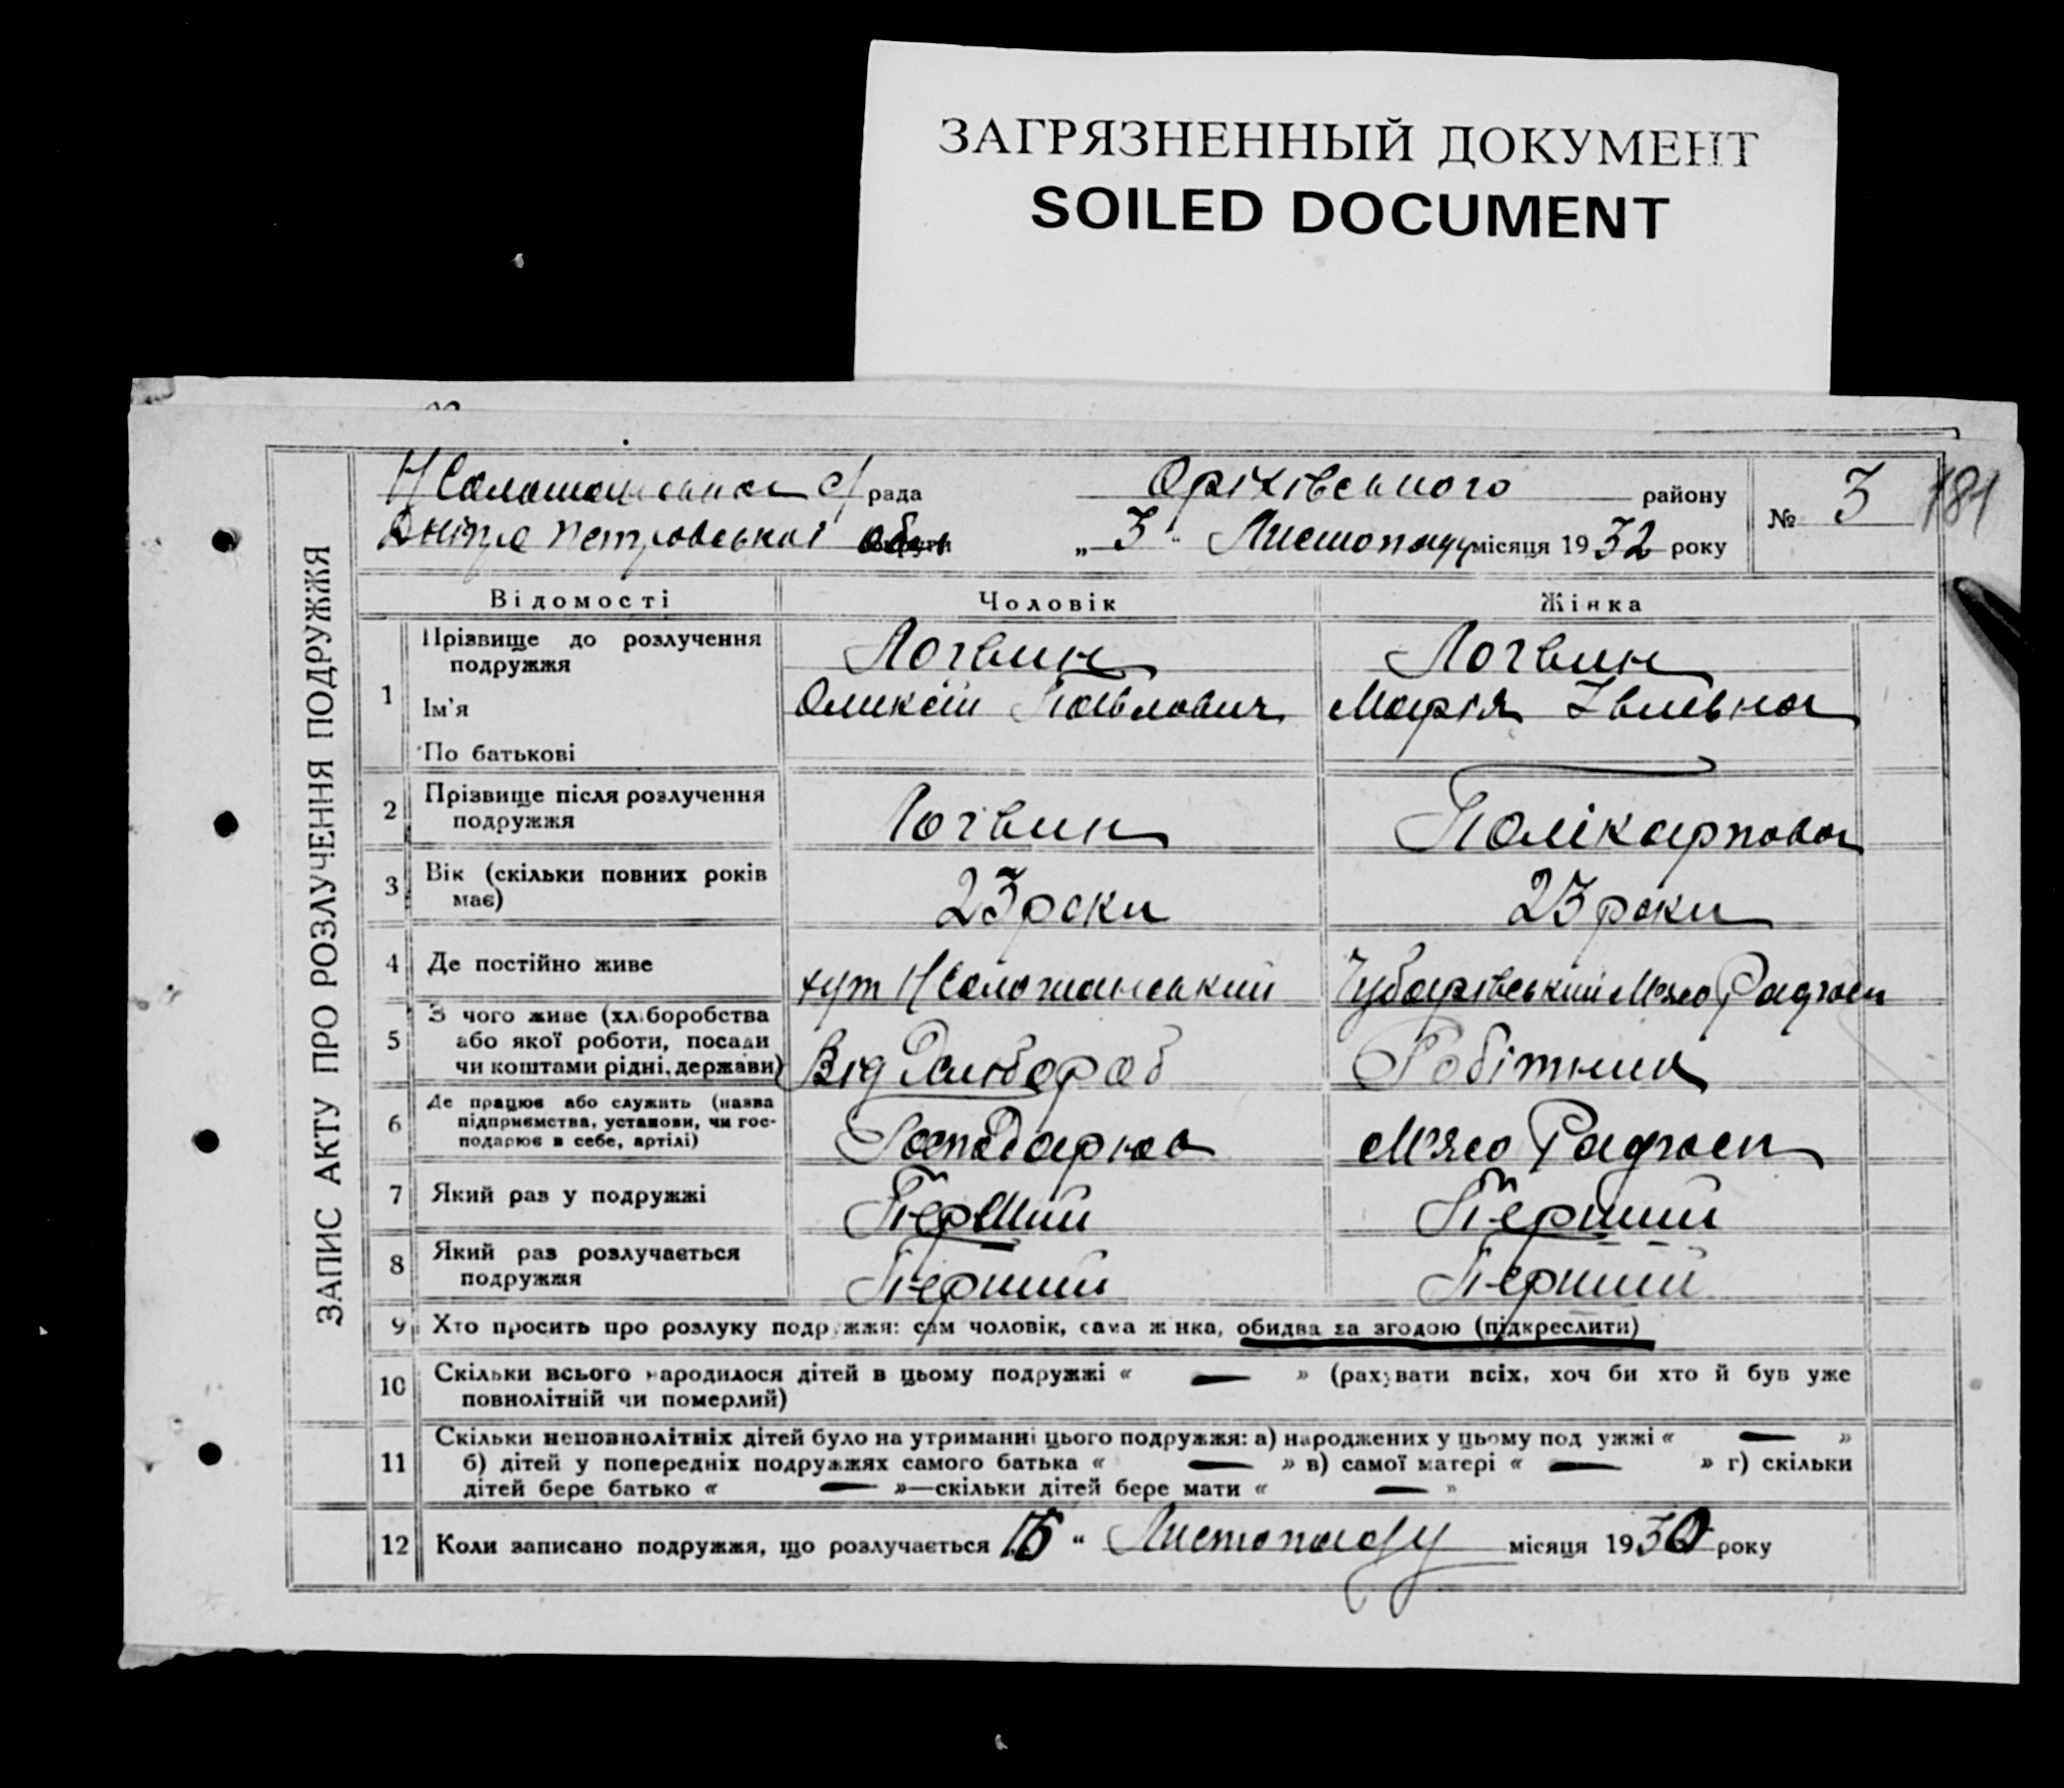 ЗАГРЯЗНЕННЫЙ ДОКУМЕНТ
SOILED DOCUMENT
с/рада Оріхівського району № 3 181
Дніпропетровської „ 3 “ Листопаду місяця 1932 року
ЗАПИС АКТУ ПРО РОЗЛУЧЕННЯ ПОДРУЖЖЯ
Відомості Чоловік Жінка
1 Прізвище до розлучення подружжя Логвин Логвин
Ім'я Оликсій Павлович Марія Івлівна
По батькові
2 Прізвище після розлучення подружжя Логвин Полікарпова
3 Вік (скільки повних років має) 23 роки 23 роки
4 Де постійно живе хут Чубарівський Мясо Радгосп
5 З чого живе (хліборобства або якої роботи, посади чи коштами рідні, держави) Від Робітник
6 Де працює або служить (назва підприємства, установи, чи господарює в себе, артілі) Господарює М'ясо Радгосп
7 Який раз у подружжі Перший Перший
8 Який раз розлучається подружжя Перший Перший
9 Хто просить про розлуку подружжя: сам чоловік, сама жінка, обидва за згодою (підкреслити)
10 Скільки всього народилося дітей в цьому подружжі « — » (рахувати всіх, хоч би хто й був уже
повнолітній чи померлий)
11 Скільки неповнолітніх дітей було на утриманні цього подружжя: а) народжених у цьому подружжі « — »
б) дітей у попередніх подружжях самого батька « — » в) самої матері « — » г) скільки
дітей бере батько « — »—скільки дітей бере мати « — »
12 Коли записано подружжя, що розлучається “ Листопаду місяця 1930 року